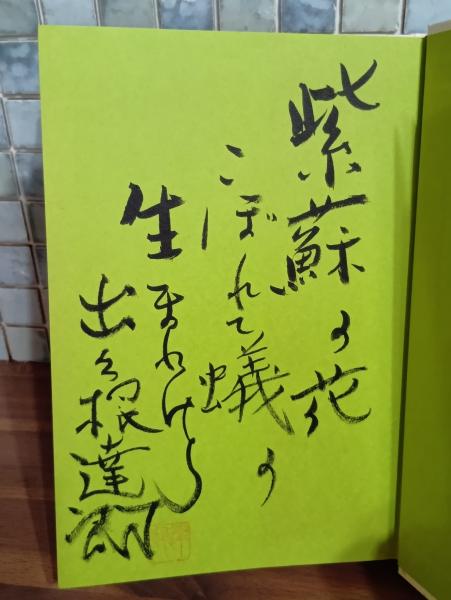 紫蘇の花の
こぼれて蟻の
生まれけり
出久根達郎